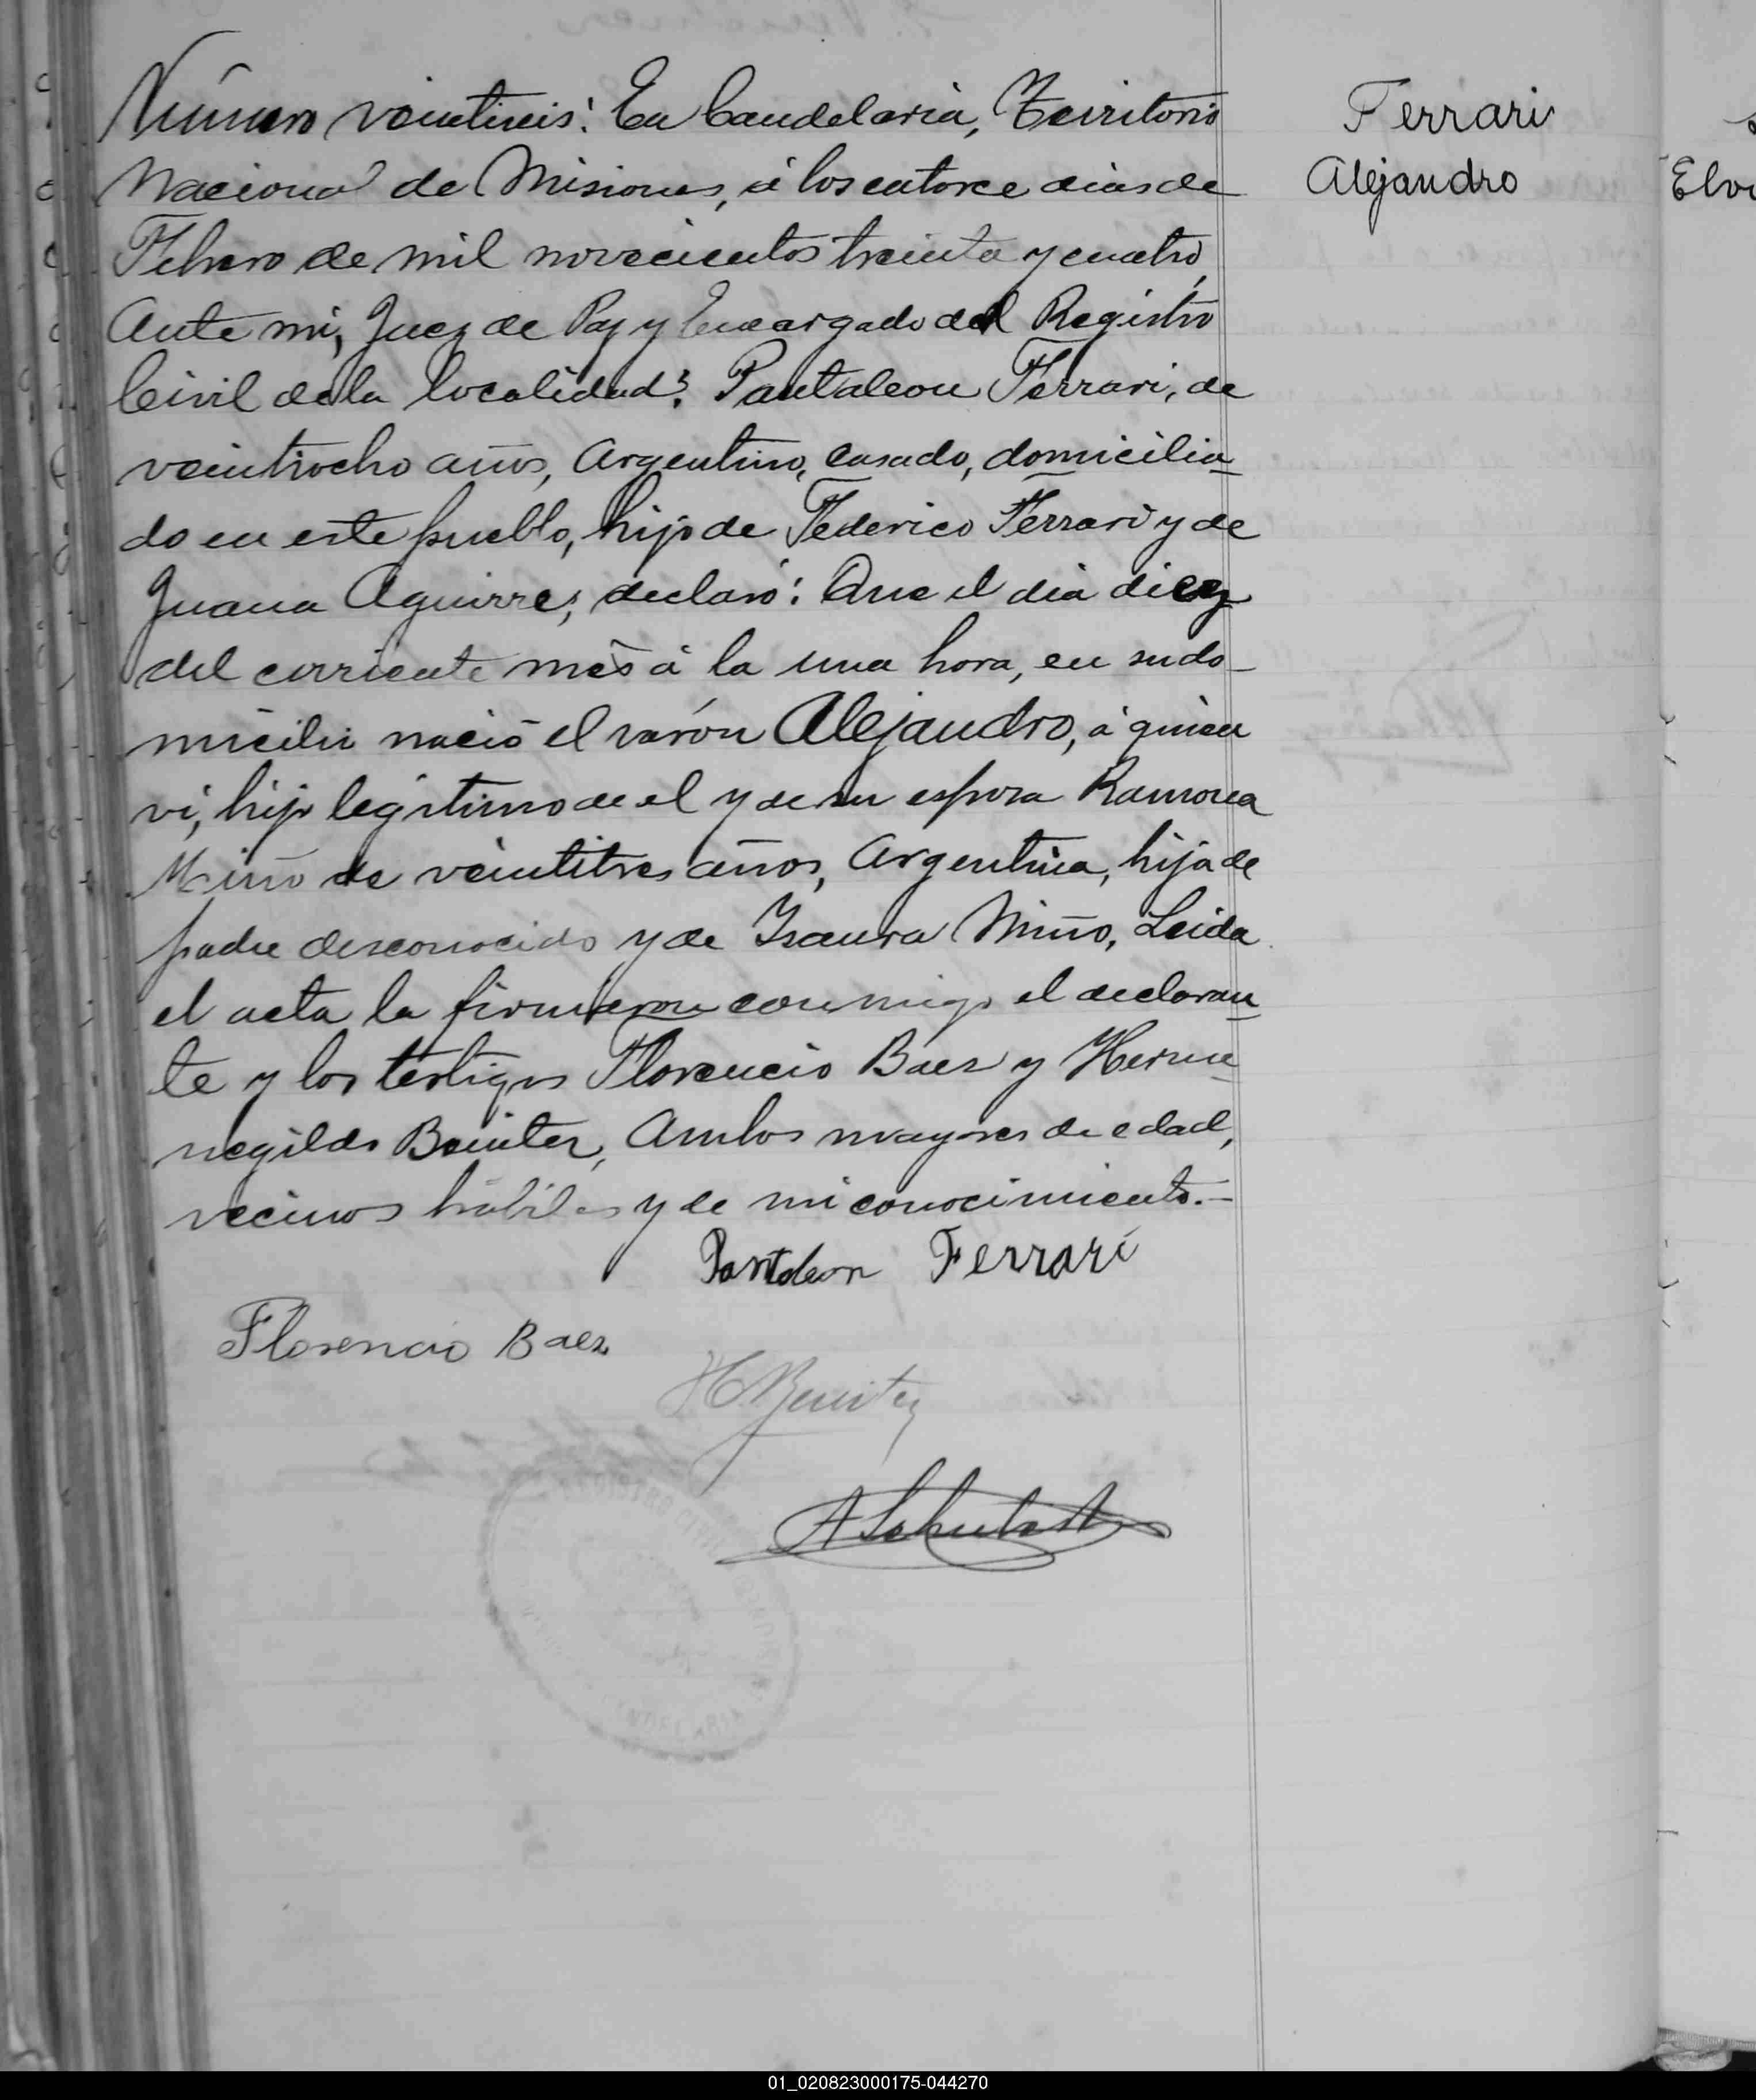 Número veintiseis: En Candelaria, Territorio
Nacional de Misiones, á los catorce dias de
Febrero de mil novecientos treinta y cuatro,
Ante mi, Juez de Paz y Encargado del Registro
Civil de la localidad: Pantaleon Ferrari, de
veintiocho años, Argentino, casado, domicilia-
do en este pueblo, hijo de Federico Ferrari y de
Juana Aguirre; declaró: Que el dia diez
del corriente més á la una hora, en su do-
micilio nació el varón Alejandro, á quien
vi, hijo legitimo de el y de su esposa Ramona
Miño de veintitres años, Argentina, hija de
padre desconocido y de Isaura Miño, Leida
el acta la firmaron conmigo el declaran-
te y los testigos Florencio Baez y Herme-
negildo Benitez, Ambos mayores de edad,
vecinos hábiles y de mi conocimiento.-
Pantaleon Ferrari
Florencio Baez
H. Benitez
Ferrari
Alejandro
01_020823000175-044270